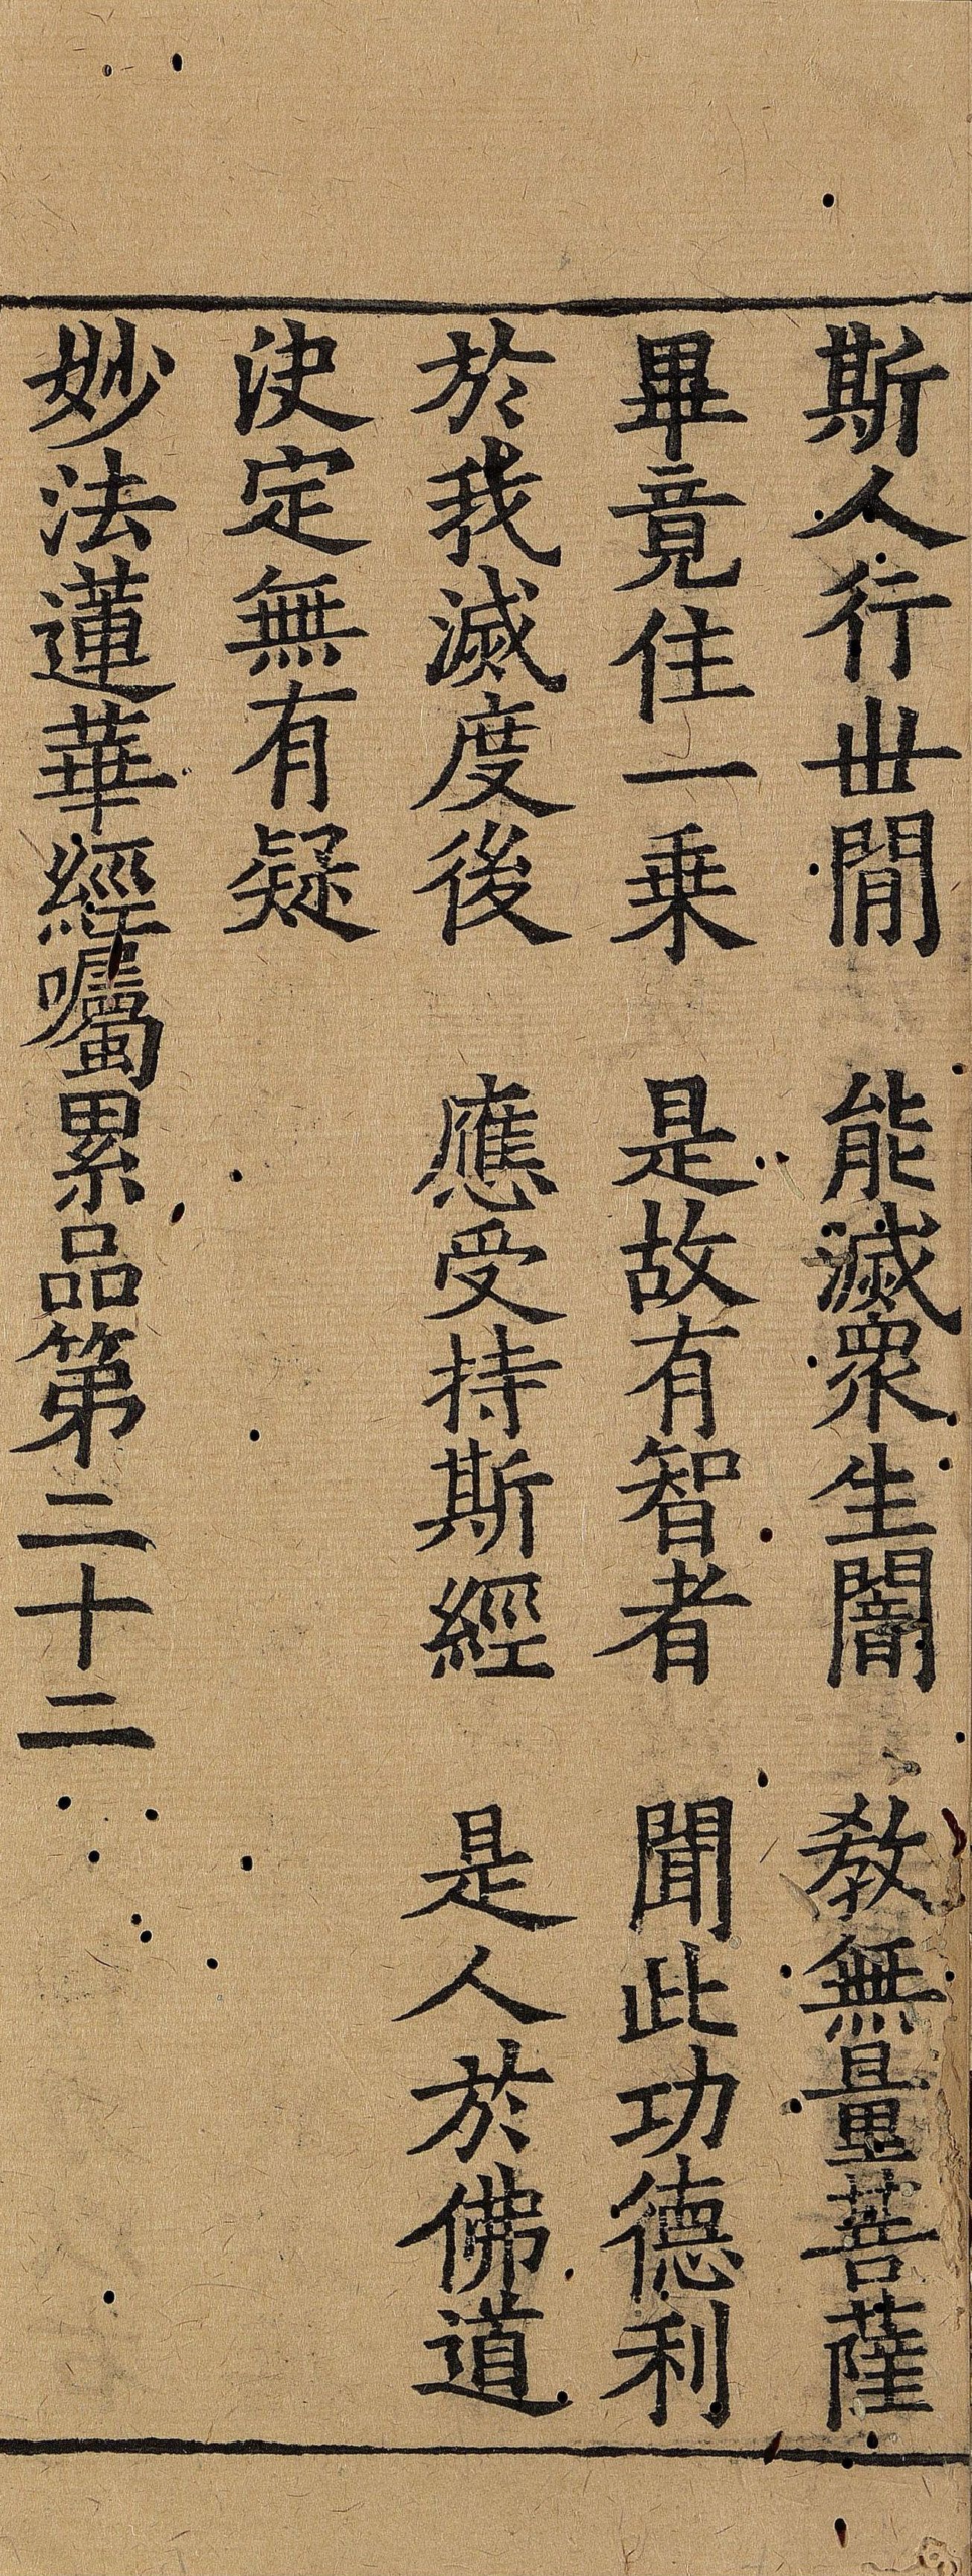 斯人行世閒　能滅衆生闇　教無量菩薩
畢竟住一乗　是故有智者　聞此功德利
於我滅度後　應受持斯經　是人於佛道
決定無有疑
妙法蓮華經囑累品第二十二